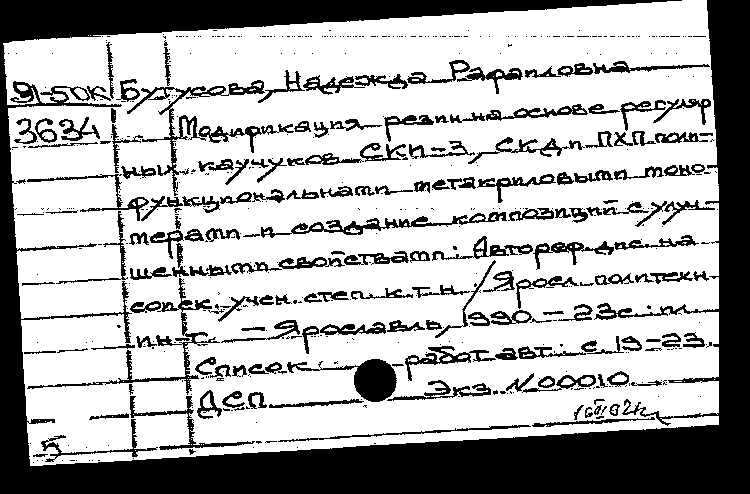 Я-50К Бутусова, Надежда Рафаиловна
3634 Модификация резин на основе регуляр
ных каучуков СКИ-3, СКД и ПХП поли-
функциональными метакриловыми моно-
мерами и создание композиций с улуч-
шенными свойствами: Автореф. дис. на
соиск. учен. степ. к.т.н. / Яросл. политехн.
ин-т. – Ярославль, 1990. – 23с.: ил.
Список работ авт.: с. 19-23.
ДСП Экз. N00010.
5